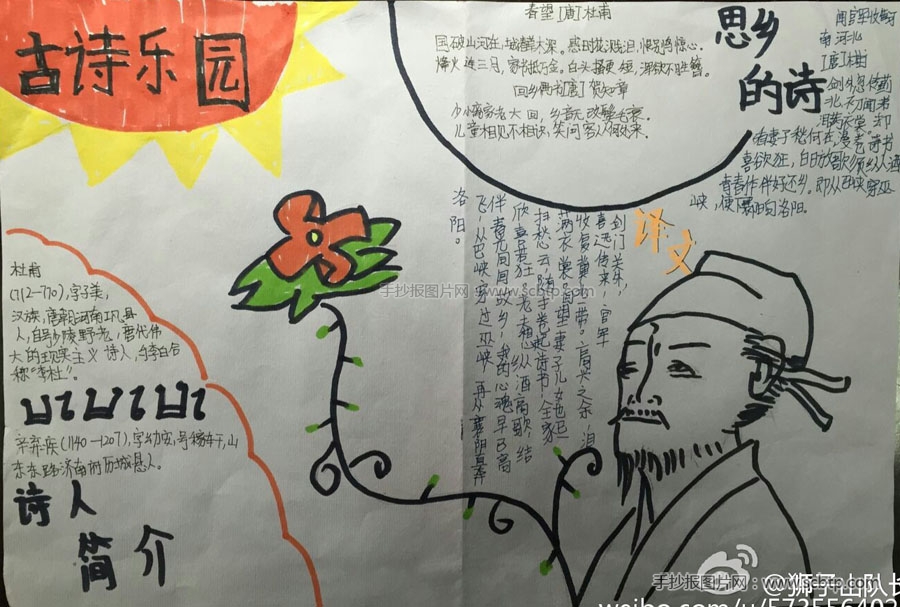 古诗乐园
春望 [唐] 杜甫
国破山河在,城春草木深。感时花溅泪,恨别鸟惊心。
烽火连三月,家书抵万金。白头搔更短,浑欲不胜簪。
回乡偶书 [唐] 贺知章
少小离家老大回,乡音无改鬓毛衰。
儿童相见不相识,笑问客人何处来。
思乡
的诗
闻官军收
南河北
[唐]
剑外忽传蓟
北,初闻
泪满衣裳。却
看妻子愁何在,漫卷诗书
喜欲狂,白日放歌须纵酒
青春作伴好还乡。即从巴峡穿巫
峡,便下襄阳向洛阳。
译文
剑门关外,
喜迅传来,官军
收复冀一带。高兴之余,泪
满衣裳。回望妻子儿女也已
扫愁云,随手卷起诗书,全家
欣喜若狂。老夫想纵酒高歌,结
伴春光同回故乡,我的心魂早已高
飞,从巴峡穿过巫峡,再从襄阳直奔
洛阳。
杜甫
(712-770),字子美,
汉族,唐朝河南巩县
人,自号少陵野老,唐代伟
大的现实主义诗人,与李白合
称“李杜”。
辛弃疾(1140-1207),字幼安,号稼轩,山
东东路济南府历城县人。
诗人
简介
手抄报图片网:www.scbtp.com
手抄报图片网:www.scbtp.com
@狮子山队长